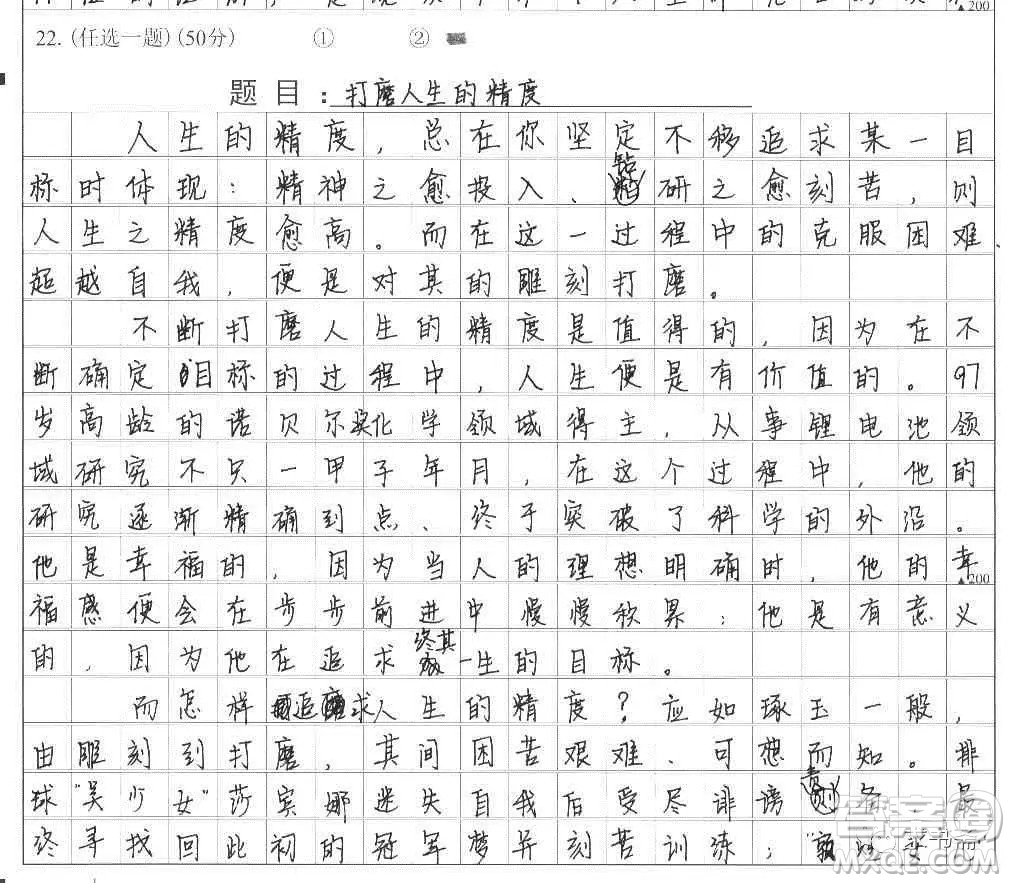 ▲200
22. (任选一题) (50分) ① ②
题目：打磨人生的精度
人生的精度，总在你坚定不移追求某一目
标时体现：精神之愈投入、钻研之愈刻苦，则
人生之精度愈高。而在这一过程中的克服困难、
超越自我，便是对其的雕刻打磨。
不断打磨人生的精度是值得的，因为在不
断确定目标的过程中，人生便是有价值的。97
岁高龄的诺贝尔奖化学领域得主，从事锂电池领
域研究不只一甲子年月，在这个过程中，他的
研究逐渐精确到点、终于突破了科学的外沿。
他是幸福的，因为当人的理想明确时，他的幸
▲200
福感便会在步步前进中慢慢积累；他是有意义
的，因为他在追求终其一生的目标。
而怎样追求人生的精度？应如琢玉一般，
由雕刻到打磨，其间困苦艰难、可想而知。排
球"吴少女"莎宾娜迷失自我后受尽诽谤责备，最
终寻找回此初的冠军梦并刻苦训练；
答案圈
MXQE.COM